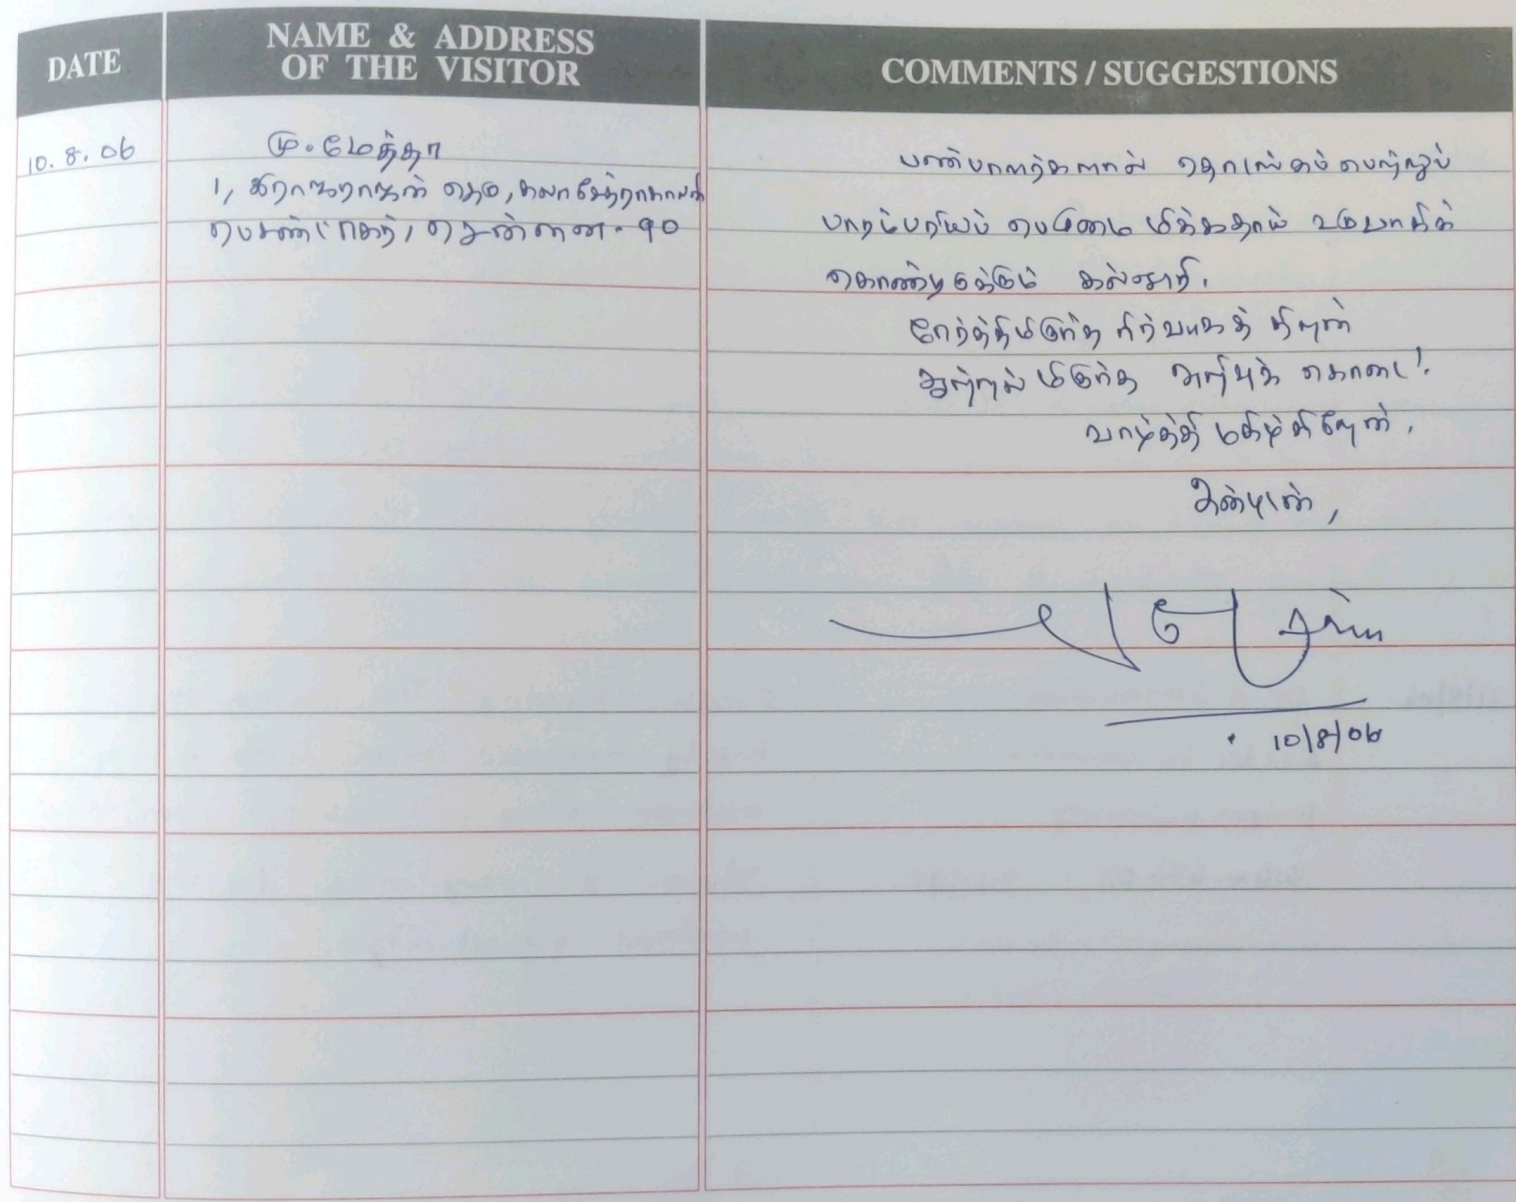 DATE
NAME & ADDRESS
OF THE VISITOR
COMMENTS / SUGGESTIONS
10.8.06
மு.மேத்தா
1, இராஜராஜன் தெரு, கலாசேத்ராகாலனி
பெசண்ட்நகர், சென்னை-90
பண்பாளர்களால் தொடக்கம் பெற்றுப்
பாரம்பரியப் பெருமை மிக்கதாய் உருவாகிக்
கொண்டிருக்கும் கல்லூரி.
நேர்த்திமிகுந்த நிர்வாகத் திறன்
ஆற்றல் மிகுந்த அறிவுக் கொடை!
வாழ்த்தி மகிழ்கிறேன்.
அன்புடன்,
10/8/06